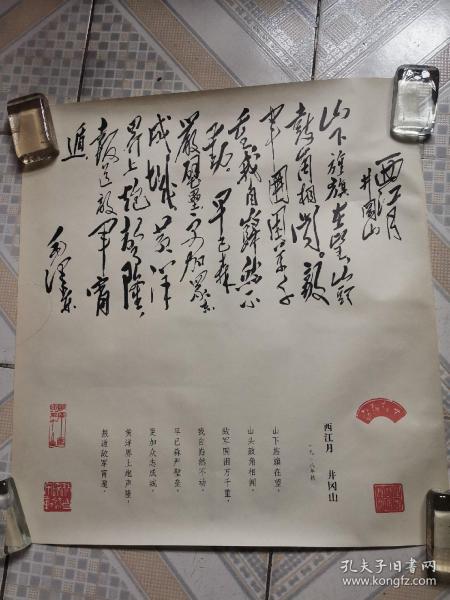 西江月
井岡山
山下旌旗在望山头
鼓角相闻敵
軍圍困萬千
重我自巋然不
動早已森
嚴壁壘更加眾志
成城黄洋
界上炮声隆
報道敵軍宵
遁
毛泽东
西江月 井冈山
一九二八年秋
山下旌旗在望，
山头鼓角相闻。
敌军围困万千重，
我自岿然不动。
早已森严壁垒，
更加众志成城。
黄洋界上炮声隆，
报道敌军宵遁。
孔夫子旧书网
www.kongfz.com